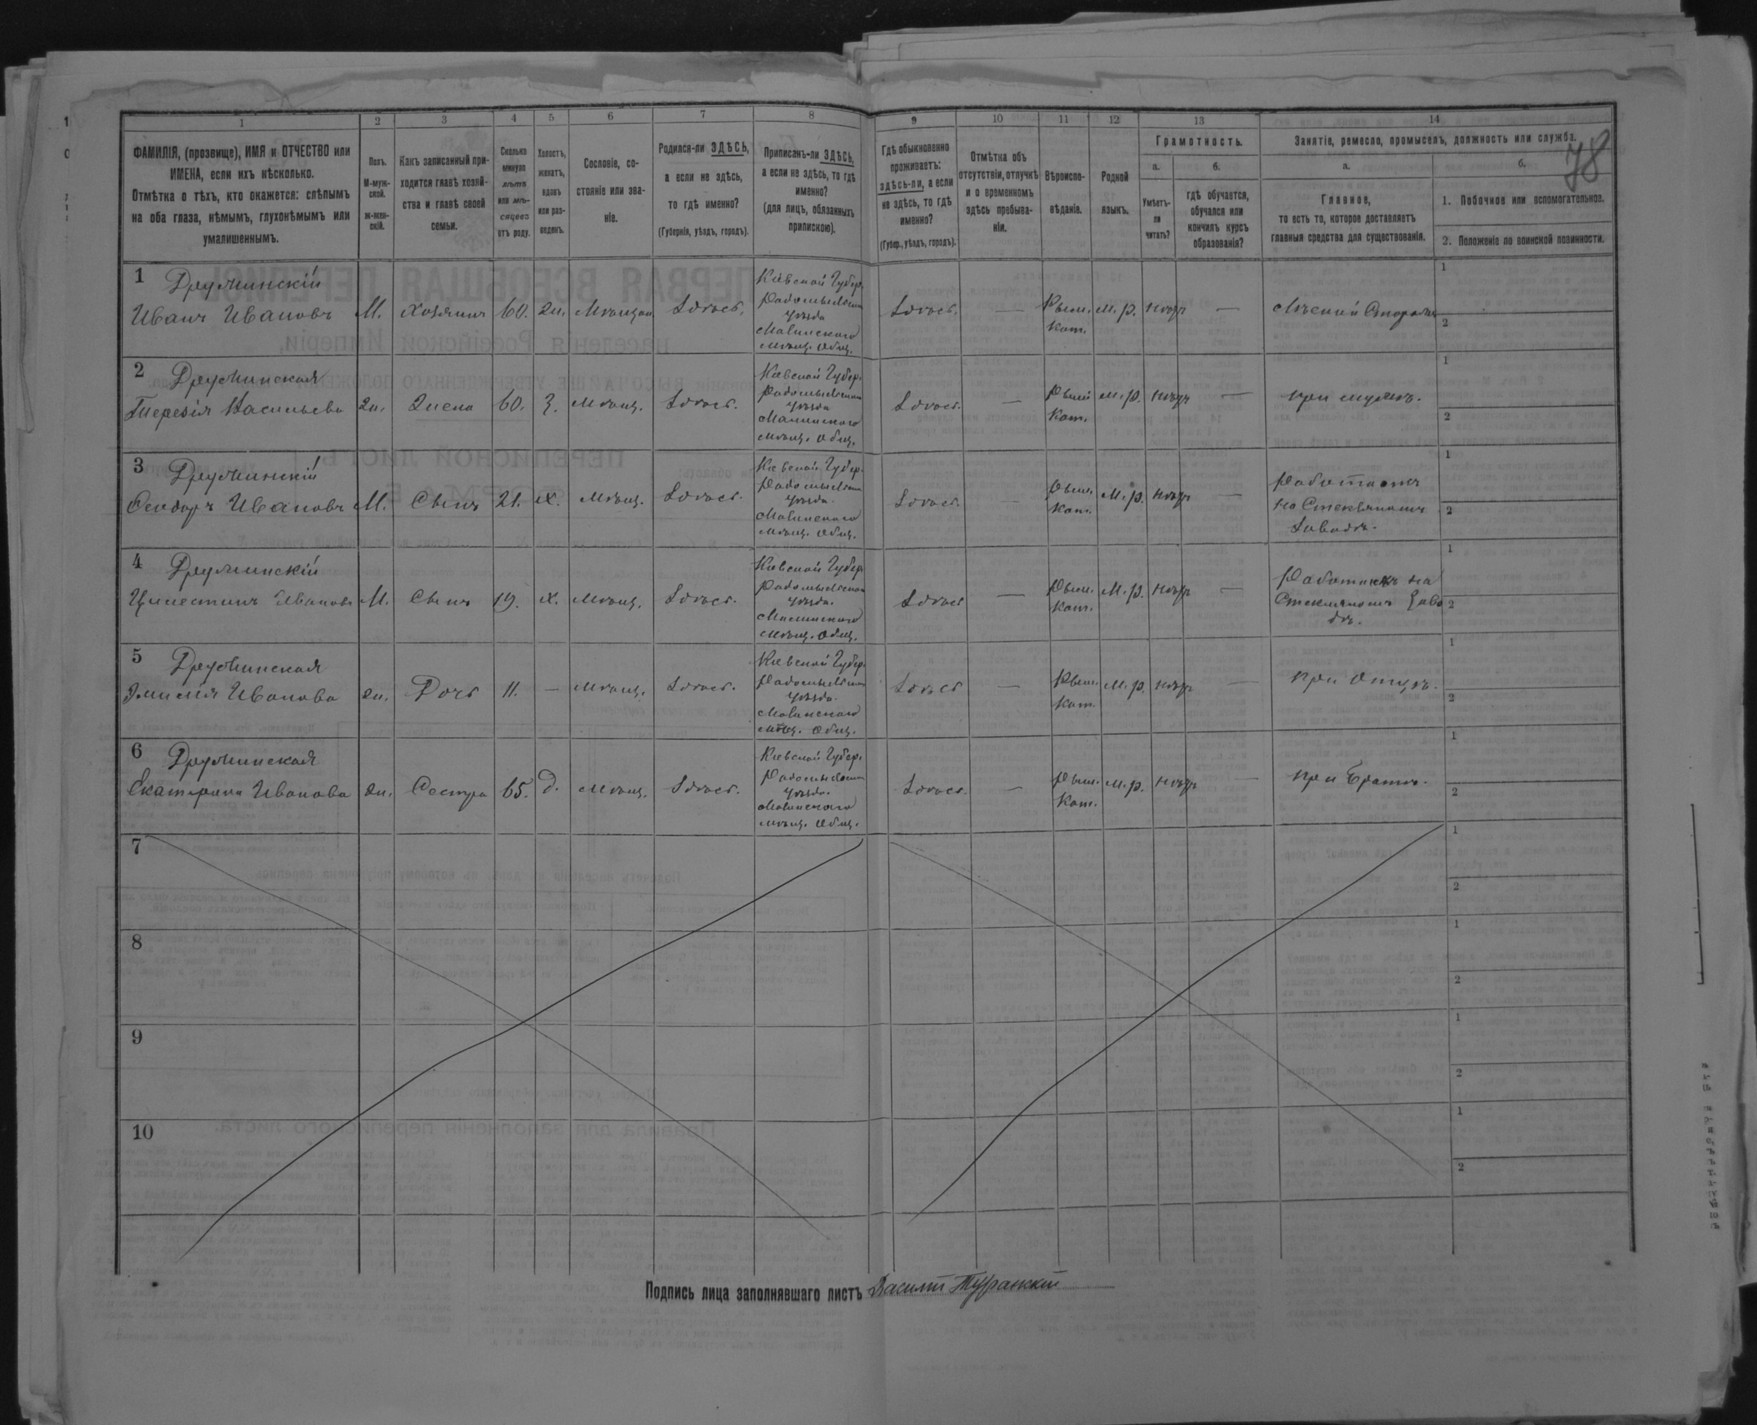 78
1 2 3 4 5 6 7 8 9 10 11 12 13 14
ФАМИЛІЯ, (прозвище), ИМЯ и ОТЧЕСТВО или
ИМЕНА, если ихъ нѣсколько.
Отмѣтка о тѣхъ, кто окажется: слѣпымъ
на оба глаза, нѣмымъ, глухонѣмымъ или
умалишеннымъ.
Полъ.
М-муж-
ской.
Ж-жен-
скій.
Какъ записанный при-
ходится главѣ хозяй-
ства и главѣ своей
семьи.
Сколько
минуло
лѣтъ
или мѣ-
сяцевъ
отъ роду.
Холостъ,
женатъ,
вдовъ
или раз-
веденъ.
Сословіе, со-
стояніе или зва-
ніе.
Родился-ли ЗДѢСЬ,
а если не здѣсь,
то гдѣ именно?
(Губернія, уѣздъ, городъ).
Приписанъ-ли ЗДѢСЬ,
а если не здѣсь, то гдѣ
именно?
(для лицъ, обязанныхъ
припискою).
Гдѣ обыкновенно
проживаетъ:
здѣсь-ли, а если
не здѣсь, то гдѣ
именно?
(Губер., уѣздъ, городъ).
Отмѣтка объ
отсутствіи, отлучкѣ
и о временномъ
здѣсь пребыва-
ніи.
Вѣроиспо-
вѣданіе.
Родной
языкъ.
Грамотность.
а.
Умѣетъ-
ли
читать?
б.
гдѣ обучается,
обучался или
кончилъ курсъ
образованія?
Занятіе, ремесло, промыселъ, должность или служба.
а.
Главное,
то есть то, которое доставляетъ
главныя средства для существованія.
б.
1. Побочное или вспомогательное.
2. Положеніе по воинской повинности.
1 Дружинскій
Иванъ Ивановъ М. Хозяинъ 60. Ж. Мѣщан. Здѣсь.
Кіевской Губер.
Радомысльск.
Уѣзда
Малинского
Мѣщ. Общ.
Здѣсь. — Рым. Кат. М. р. нѣтъ — Лѣсной Сторожъ
1
2
2 Дружинская
Терезія Васильева Ж. Жена 60. З. Мѣщ. Здѣсь.
Кіевской Губер.
Радомысльск.
Уѣзда
Малинского
Мѣщ. Общ.
Здѣсь. — Рым. Кат. М. р. нѣтъ — при мужѣ.
1
2
3 Дружинскій
Феодоръ Ивановъ М. Сынъ 21. Х. Мѣщ. Здѣсь.
Кіевской Губер.
Радомысльск.
Уѣзда.
Малинского
Мѣщ. Общ.
Здѣсь. — Рым. Кат. М. р. нѣтъ —
Работаетъ
на Стеклянномъ
Заводѣ.
1
2
4 Дружинскій
Целестинъ Ивановъ М. Сынъ 19. Х. Мѣщ. Здѣсь.
Кіевской Губер.
Радомысльск.
Уѣзда.
Малинского
Мѣщ. Общ.
Здѣсь — Рым. Кат. М. р. нѣтъ —
Работникъ на
Стеклянномъ Заво
дѣ.
1
2
5 Дружинская
Эмилія Иванова Ж. Дочь 11. — Мѣщ. Здѣсь.
Кіевской Губер.
Радомысльск.
Уѣзда.
Малинского
Мѣщ. Общ.
Здѣсь — Рым. Кат. М. р. нѣтъ — при Отцѣ.
1
2
6 Дружинская
Екатерина Иванова Ж. Сестра 65. Д. Мѣщ. Здѣсь.
Кіевской Губер.
Радомысльск.
Уѣзда.
Малинского
Мѣщ. Общ.
Здѣсь — Рым. Кат. М. р. нѣтъ — при Братѣ.
1
2
7
1
2
8
1
2
9
1
2
10
1
2
Подпись лица заполнявшаго листъ Василій